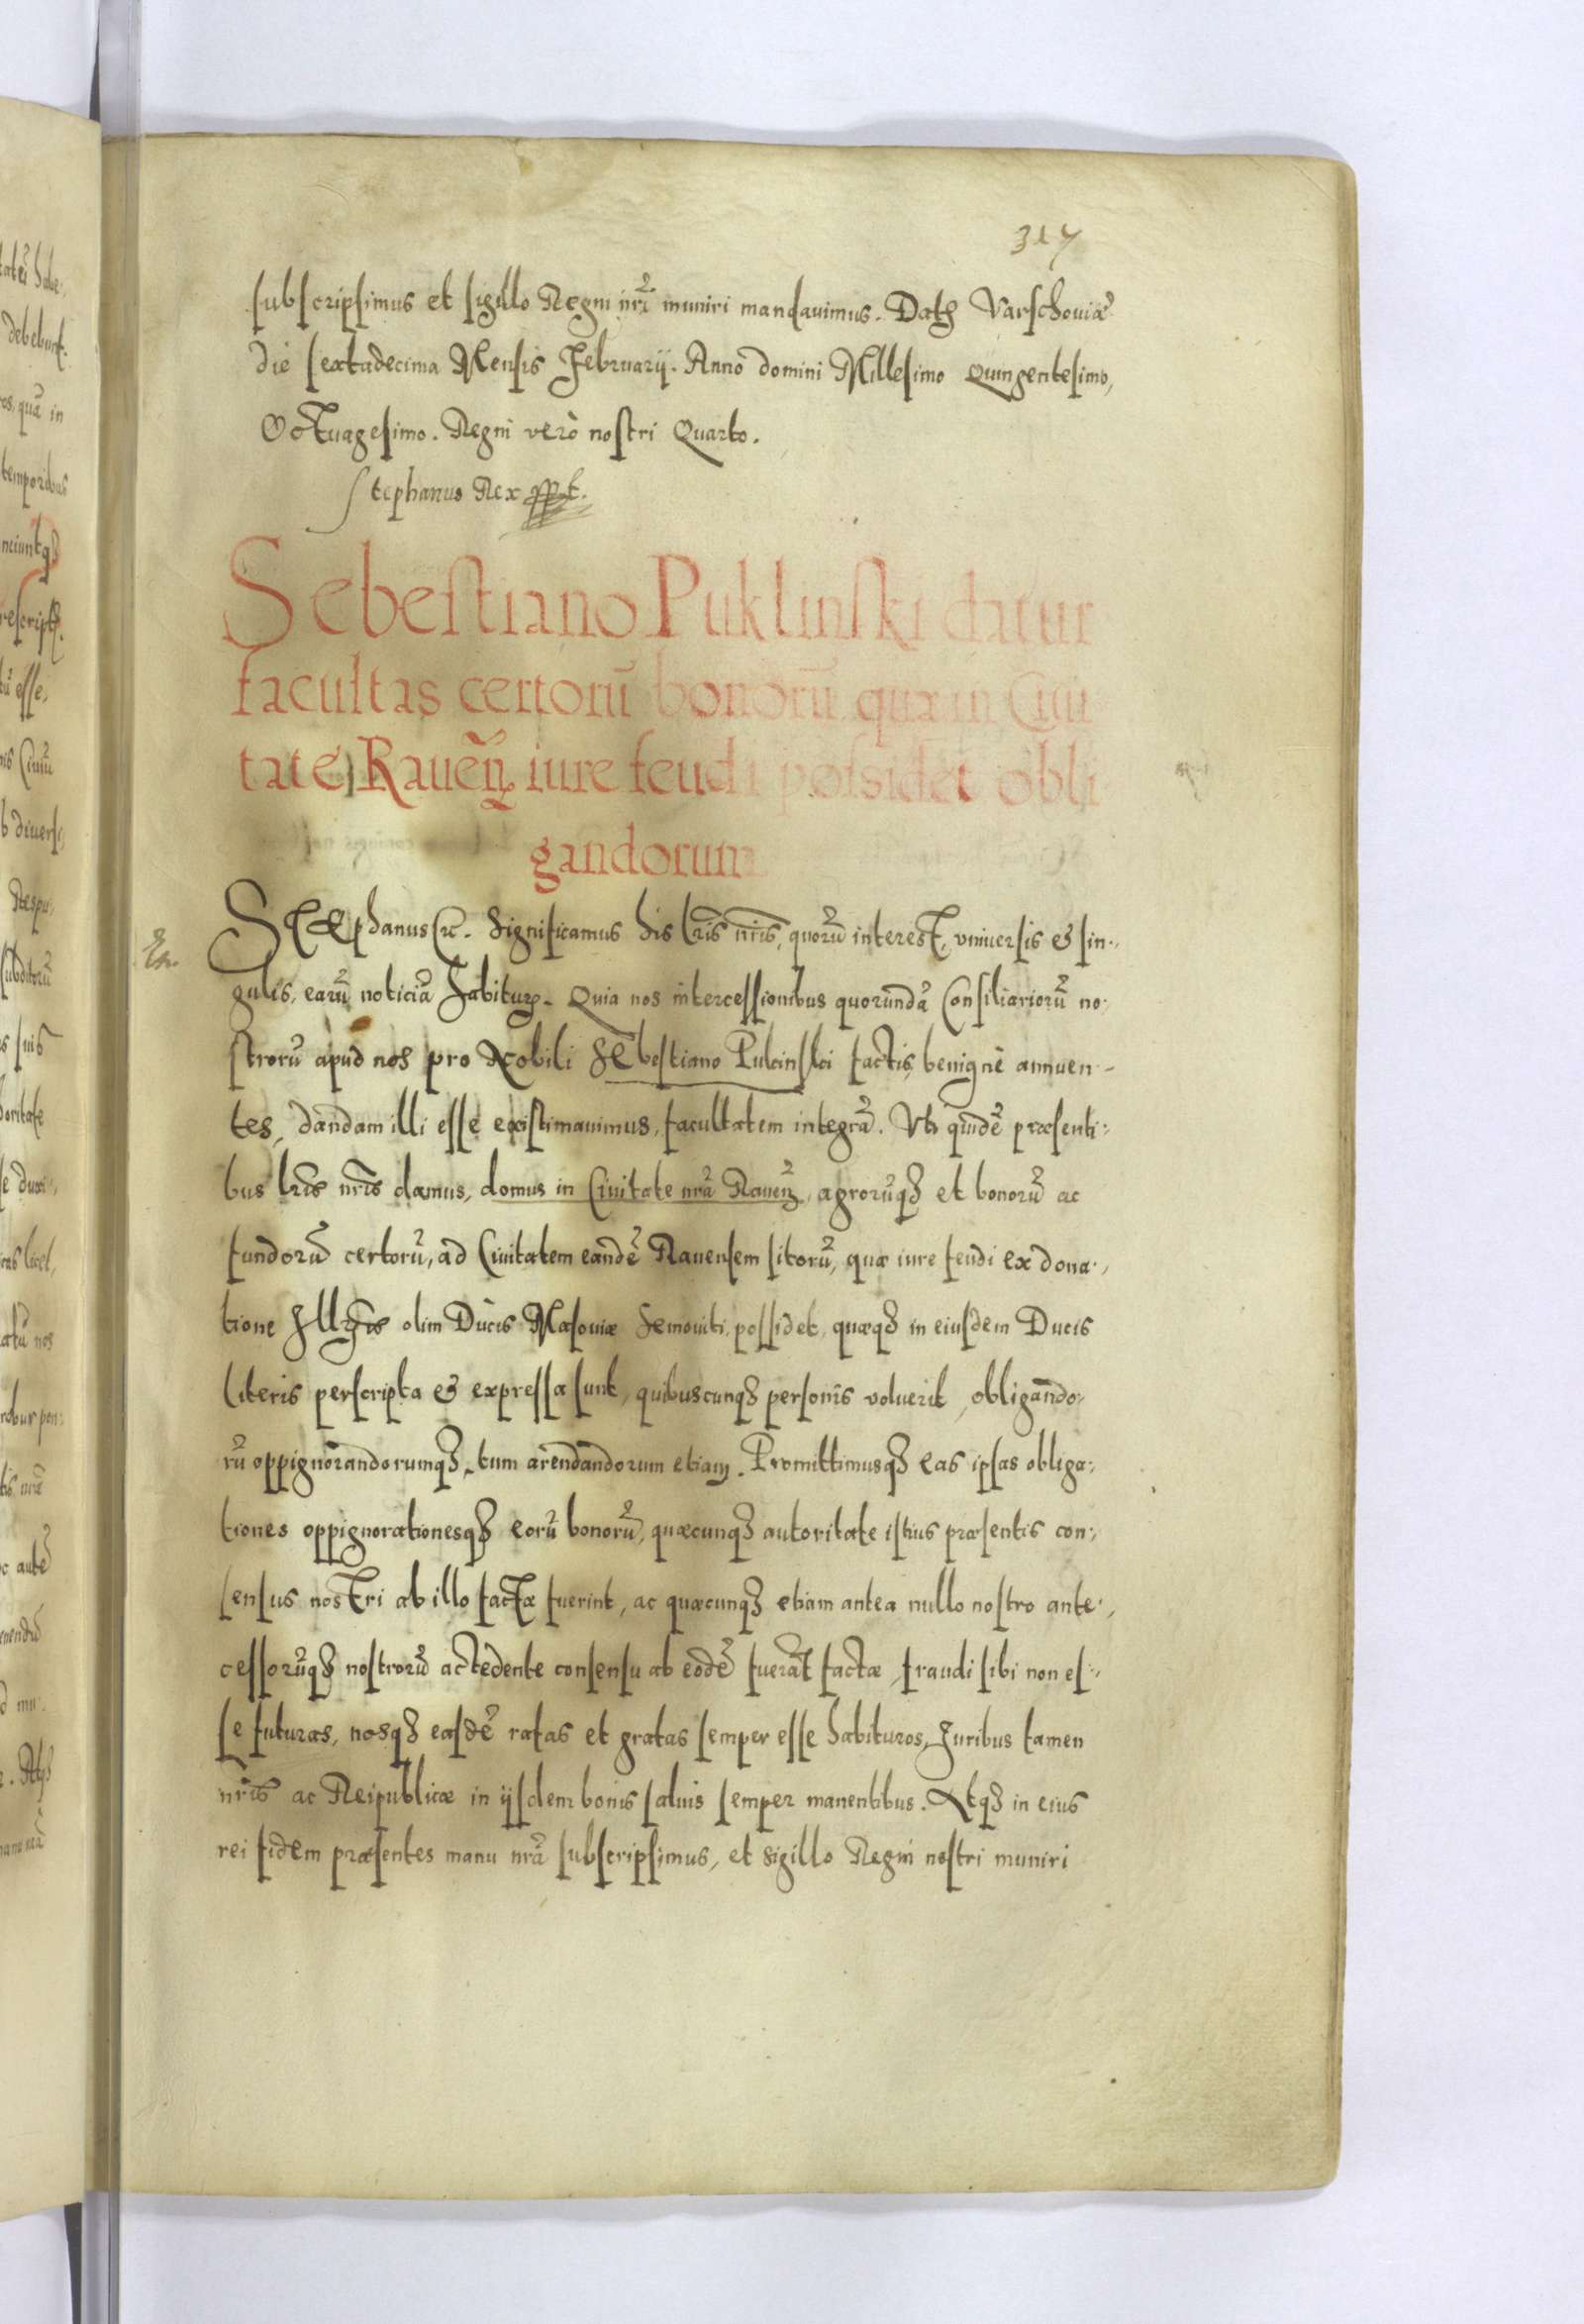 317
subscripsimus et sigillo Regni nrĩ muniri mandauimus. Datꝫ Varschouiæ
die sextadecima Mensis Februarij. Anno domini Millesimo Quingentesimo,
Octuagesimo. Regni verò nostri Quarto.
Stephanus Rex sspt.
Sebestiano Puklinski datur
facultas certorũ bonorũ quæ in Ciui
tate Raueñ iure feudi possidet obli
gandorum
Stephanus &c. Significamus his lr̃is nr̃is, quorũ interest, vniuersis & sin-
gulis, earũ noticiã habituꝝ. Quia nos intercessionibus quorundã Consiliariorũ no-
strorũ apud nos pro Nobili Sebestiano Pulcinski factis, benignè annuen-
tes, dandam illi esse existimauimus, facultatem integrã. Vti quidẽ præsenti-
bus lr̃is nr̃is damus, domus in Ciuitate nrã Raueñ, agrorũqꝫ et bonorũ ac
fundorũ certorũ, ad Ciuitatem eandẽ Rauensem sitorũ, quæ iure feudi ex dona-
tione Illr̃is olim Ducis Masouiæ Semouiti possidet, quæqꝫ in eiusdem Ducis
literis perscripta & expressa sunt, quibuscunqꝫ personis voluerit, obligando-
rũ oppignorandorumqꝫ, tum arendandorum etiam. Promittimusqꝫ eas ipsas obliga-
tiones oppignorationesqꝫ eorũ bonorũ, quæcunqꝫ autoritate istius præsentis con-
sensus nostri ab illo factæ fuerint, ac quæcunqꝫ etiam antea nullo nostro ante-
cessorũqꝫ nostrorũ accedente consensu ab eodẽ fuerãt factæ, fraudi sibi non es-
se futuras, nosqꝫ easdẽ ratas et gratas semper esse habituros, Iuribus tamen
nr̃is ac Reipublicæ in ijsdem bonis saluis semper manentibus. Atqꝫ in eius
rei fidem præsentes manu nrã subscripsimus, et sigillo Regni nostri muniri